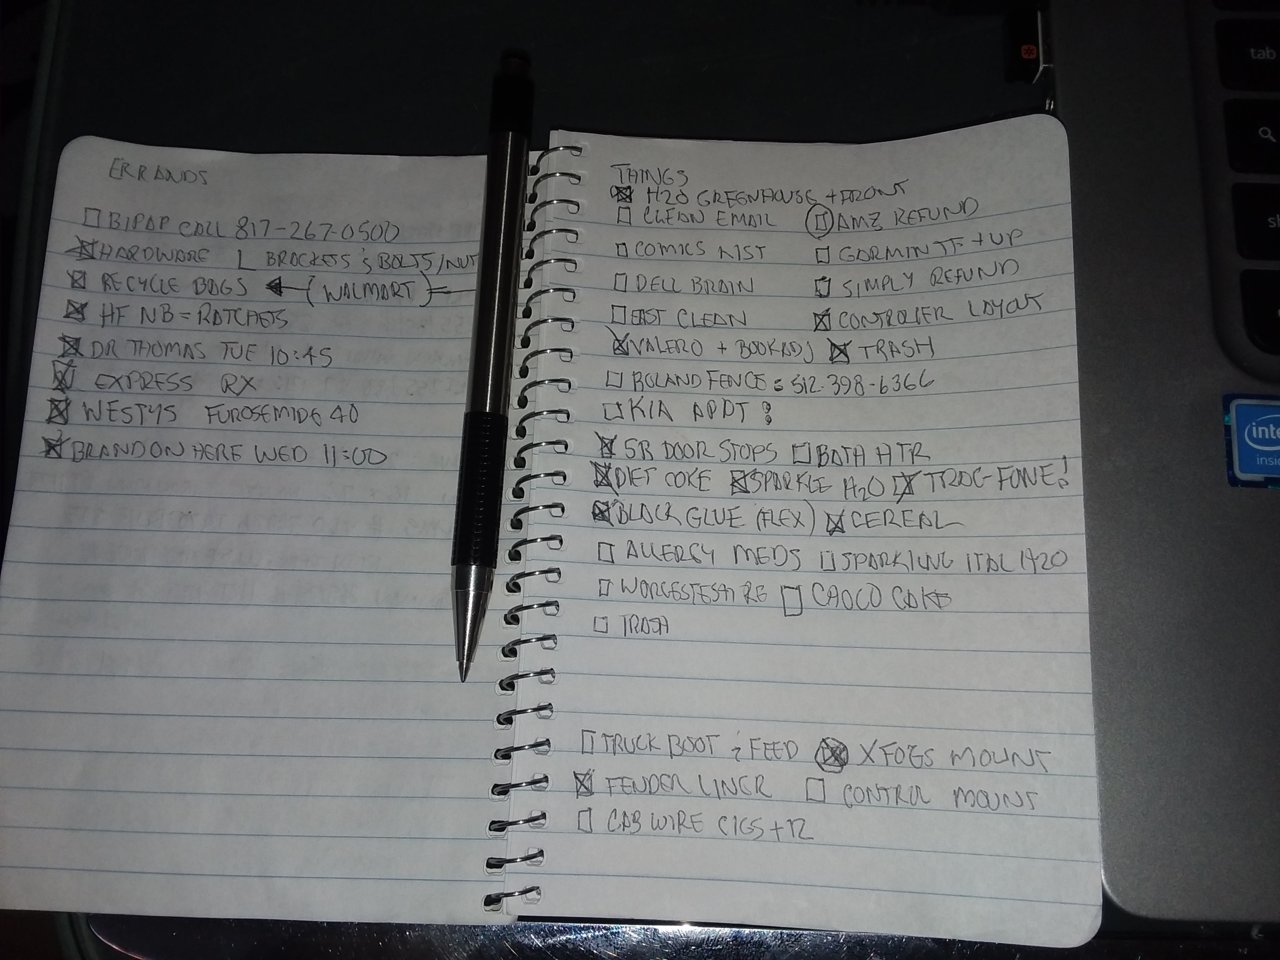 ERRANDS
BIPAP CALL 817-267-0500
HARDWARE L BRACKETS & BOLTS/NUT
RECYCLE BAGS (WALMART)
HF NB = RATCHETS
DR THOMAS TUE 10:45
EXPRESS RX
WESTYS FUROSEMIDE 40
BRANDON HERE WED 11:00
THINGS
H2O GREENHOUSE + FRONT
CLEAN EMAIL AMZ REFUND
COMICS LIST GARMIN TF + UP
DELL BRAIN SIMPLY REFUND
EAST CLEAN CONTROLER LAYOUT
VALERO + BOOK ADJ TRASH
ROLAND FENCE: 512-398-6366
KIA APPT:
SR DOOR STOPS BATH HTR
DIET COKE SPARKLE H2O TRAC-FONE!
BLACK GLUE (FLEX) CEREAL
ALLERGY MEDS SPARKLING ITAL H20
WORCESTESHIRE CHOCO CAKE
TRASH
TRUCK BOOT & FEED XFOGS MOUNT
FENDER LINER CONTROL MOUNT
CAB WIRE CIGS + 12
tab
intel
inside